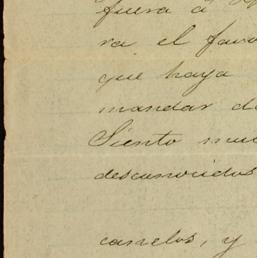 fuera á
ra el favo
que haya
mandar d
Siento mu
desconocidos
canelos, y